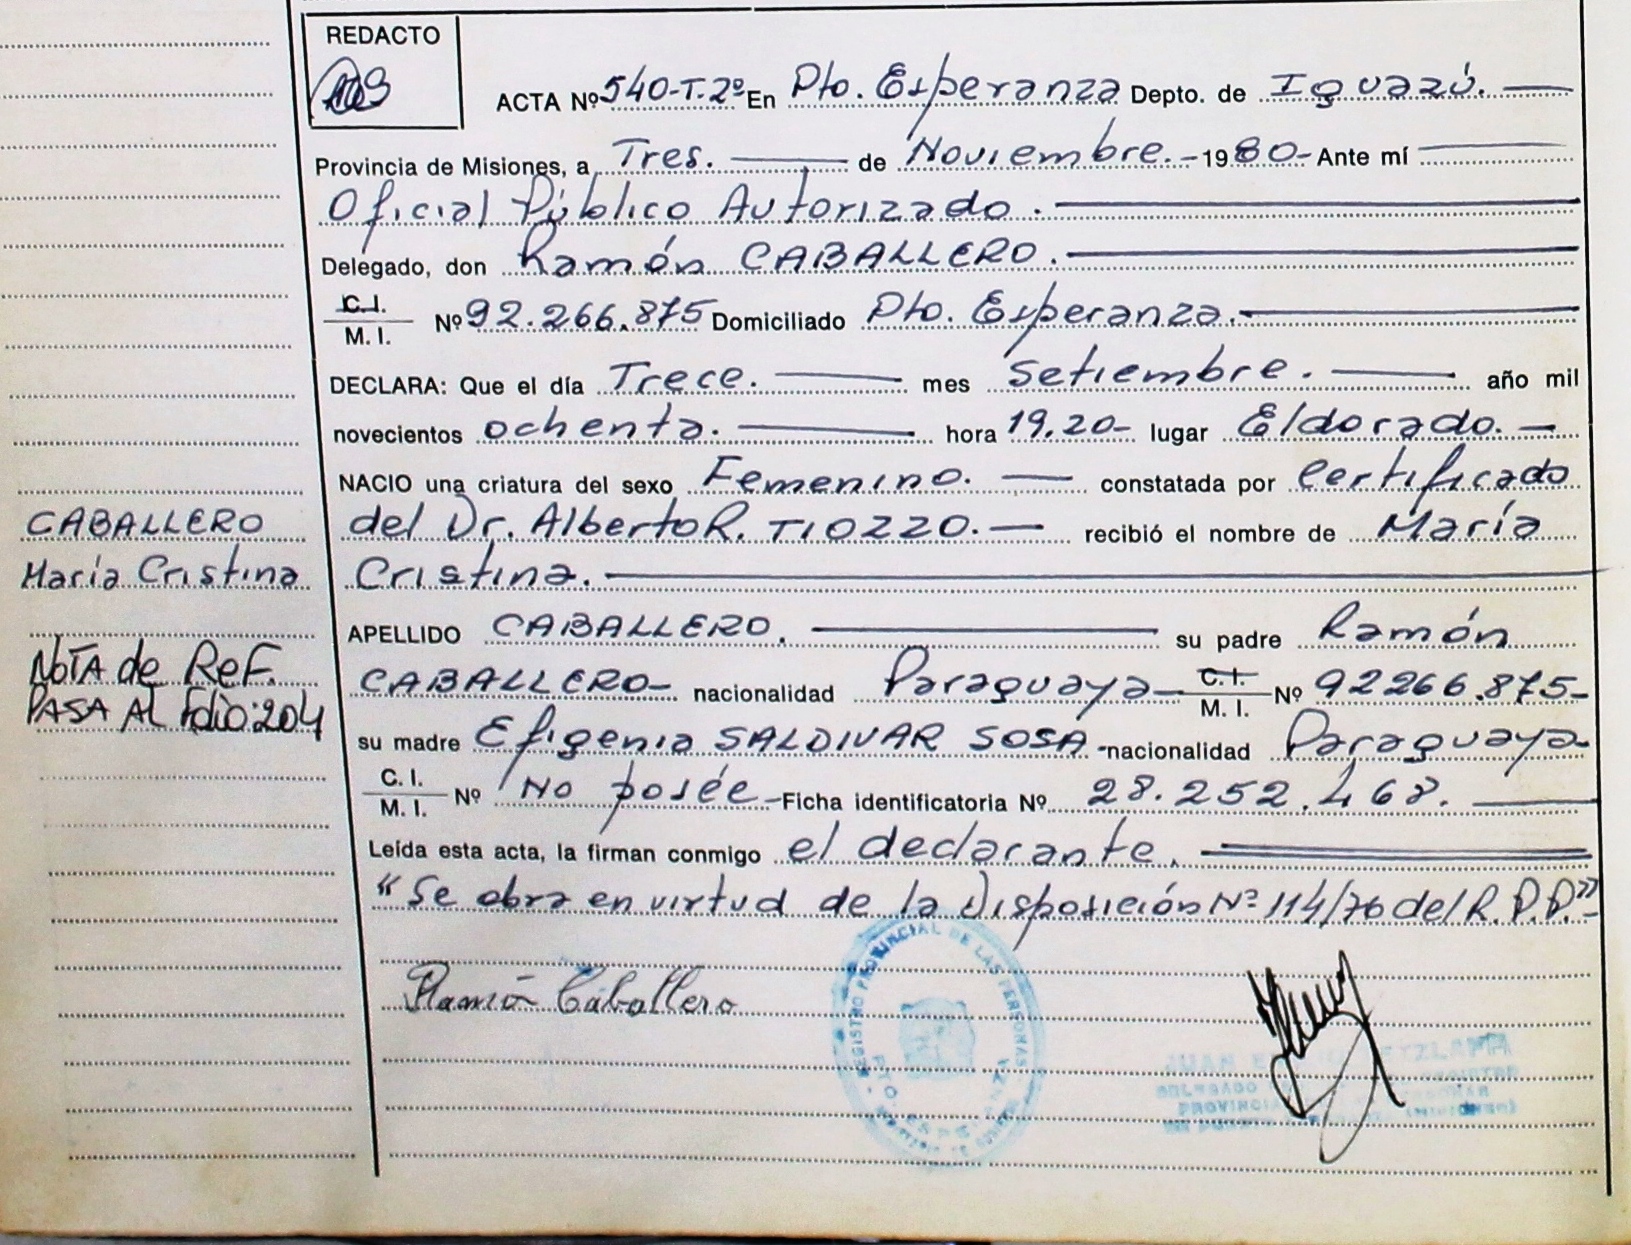 REDACTO
ACTA Nº 540-T.2º En Pto. Esperanza Depto. de Iguazú.
Provincia de Misiones, a Tres. de Noviembre.- 1980- Ante mí
Oficial Público Autorizado.
Delegado, don Ramón CABALLERO.
C.I.
M. I. Nº 92.266.875 Domiciliado Pto. Esperanza.
DECLARA: Que el día Trece. mes Setiembre. año mil
novecientos ochenta. hora 19.20- lugar Eldorado.
NACIO una criatura del sexo Femenino. constatada por Certificado
del Dr. Alberto R. TIOZZO. recibió el nombre de María
Cristina.
CABALLERO
María Cristina
APELLIDO CABALLERO. su padre Ramón
CABALLERO- nacionalidad Paraguaya- C.I.
M. I. Nº 92266.875-
NOTA de ReF.
PASA AL Folio:204
su madre Efigenia SALDIVAR SOSA -nacionalidad Paraguaya-
C. I.
M. I. Nº No posée -Ficha identificatoria Nº 28.252.468.
Leída esta acta, la firman conmigo el declarante.
"Se obra en virtud de la Disposición Nº 114/76 del R.P.P."-
Ramón Caballero
REGISTRO PROVINCIAL DE LAS PERSONAS
JUAN
DELEGADO
PROVINCIA
(MISIONES)